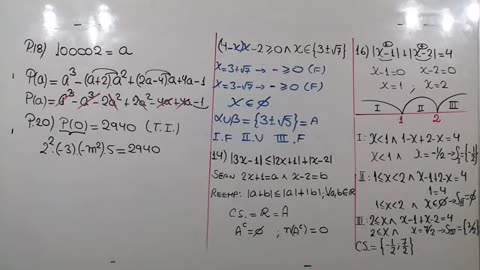 P18) 100002 = a
P(a) = a³ - (a+2)a² + (2a-4)a + 4a - 1
P(a) = a³ - a³ - 2a² + 2a² - 4a + 4a - 1
P20) P(0) = 2940 (T.I.)
2²·(-3)·(-m²)·5 = 2940
(4-x)x - 2 ≥ 0 ∧ x ∈ {3±√7}
x = 3+√7 → - ≥ 0 (F)
x = 3-√7 → - ≥ 0 (F)
x ∈ ∅
α∪β = {3±√5} = A
I. F II. V III. F
14) |3x-1| ≤ |2x+1| + |x-2|
SEAN 2x+1 = a ∧ x-2 = b
REEMP: |a+b| ≤ |a| + |b|, ∀a,b ∈ R
C.S. = R = A
Aᶜ = ∅ ; n(Aᶜ) = 0
16) |x-1| + |x-2| = 4
x-1=0 x-2=0
x = 1 ; x = 2
I II III
1 2
I: x<1 ∧ 1-x+2-x = 4
x<1 ∧ x = -1/2 → S_I = {-1/2}
II: 1≤x<2 ∧ x-1+2-x = 4
1 = 4
1≤x<2 ∧ x ∈ ∅ → S_II = ∅
III: 2≤x ∧ x-1+x-2 = 4
2≤x ∧ x = 7/2 → S_III = {7/2}
CS. = {-1/2, 7/2}